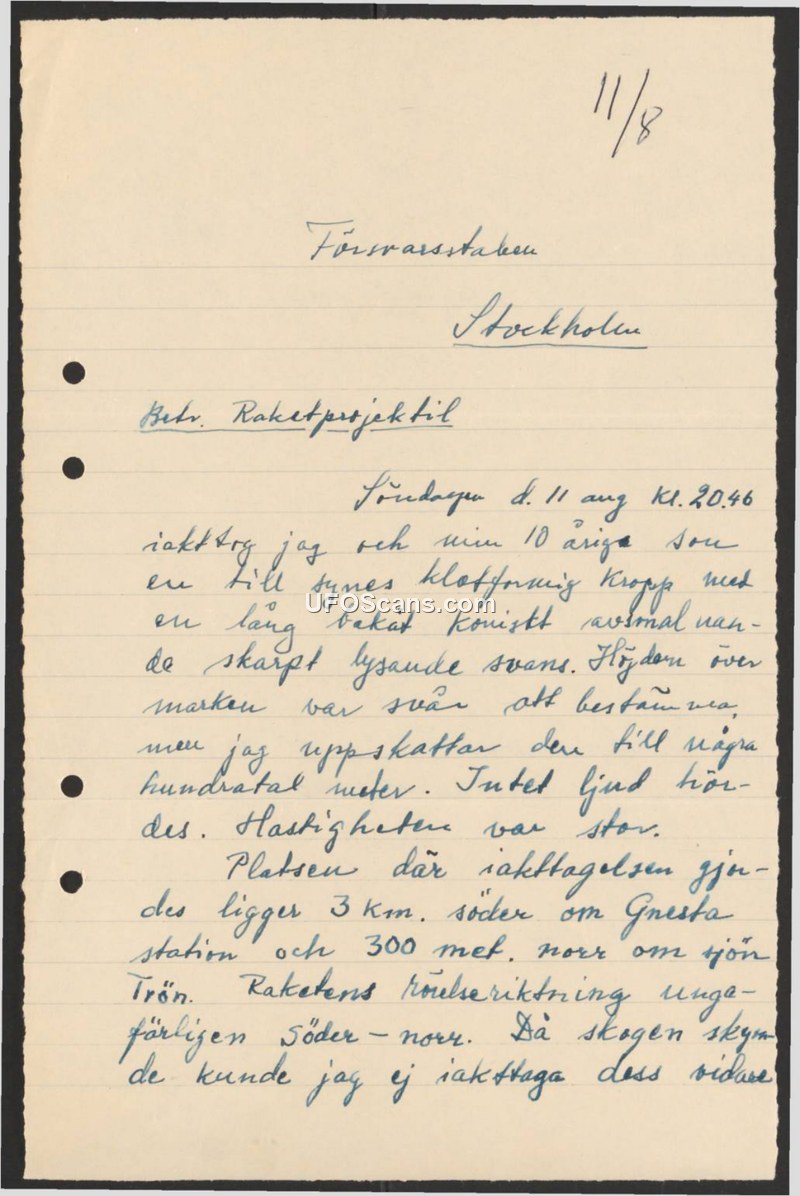 11/8
Försvarsstaben
Stockholm
Betr. Raketprojektil
Söndagen d. 11 aug kl. 20.46
iakttog jag och min 10 årige son
en till synes klotformig kropp med
en lång bakåt koniskt avsmalnan-
UFOScans.com
de skarpt lysande svans. Höjden över
marken var svår att bestämma,
men jag uppskattar den till några
hundratal meter. Intet ljud hör-
des. Hastigheten var stor.
Platsen där iakttagelsen gjor-
des ligger 3 km. söder om Gnesta
station och 300 met. norr om sjön
Trön. Raketens rörelseriktning unge-
färligen söder – norr. Då skogen skym-
de kunde jag ej iakttaga dess vidare